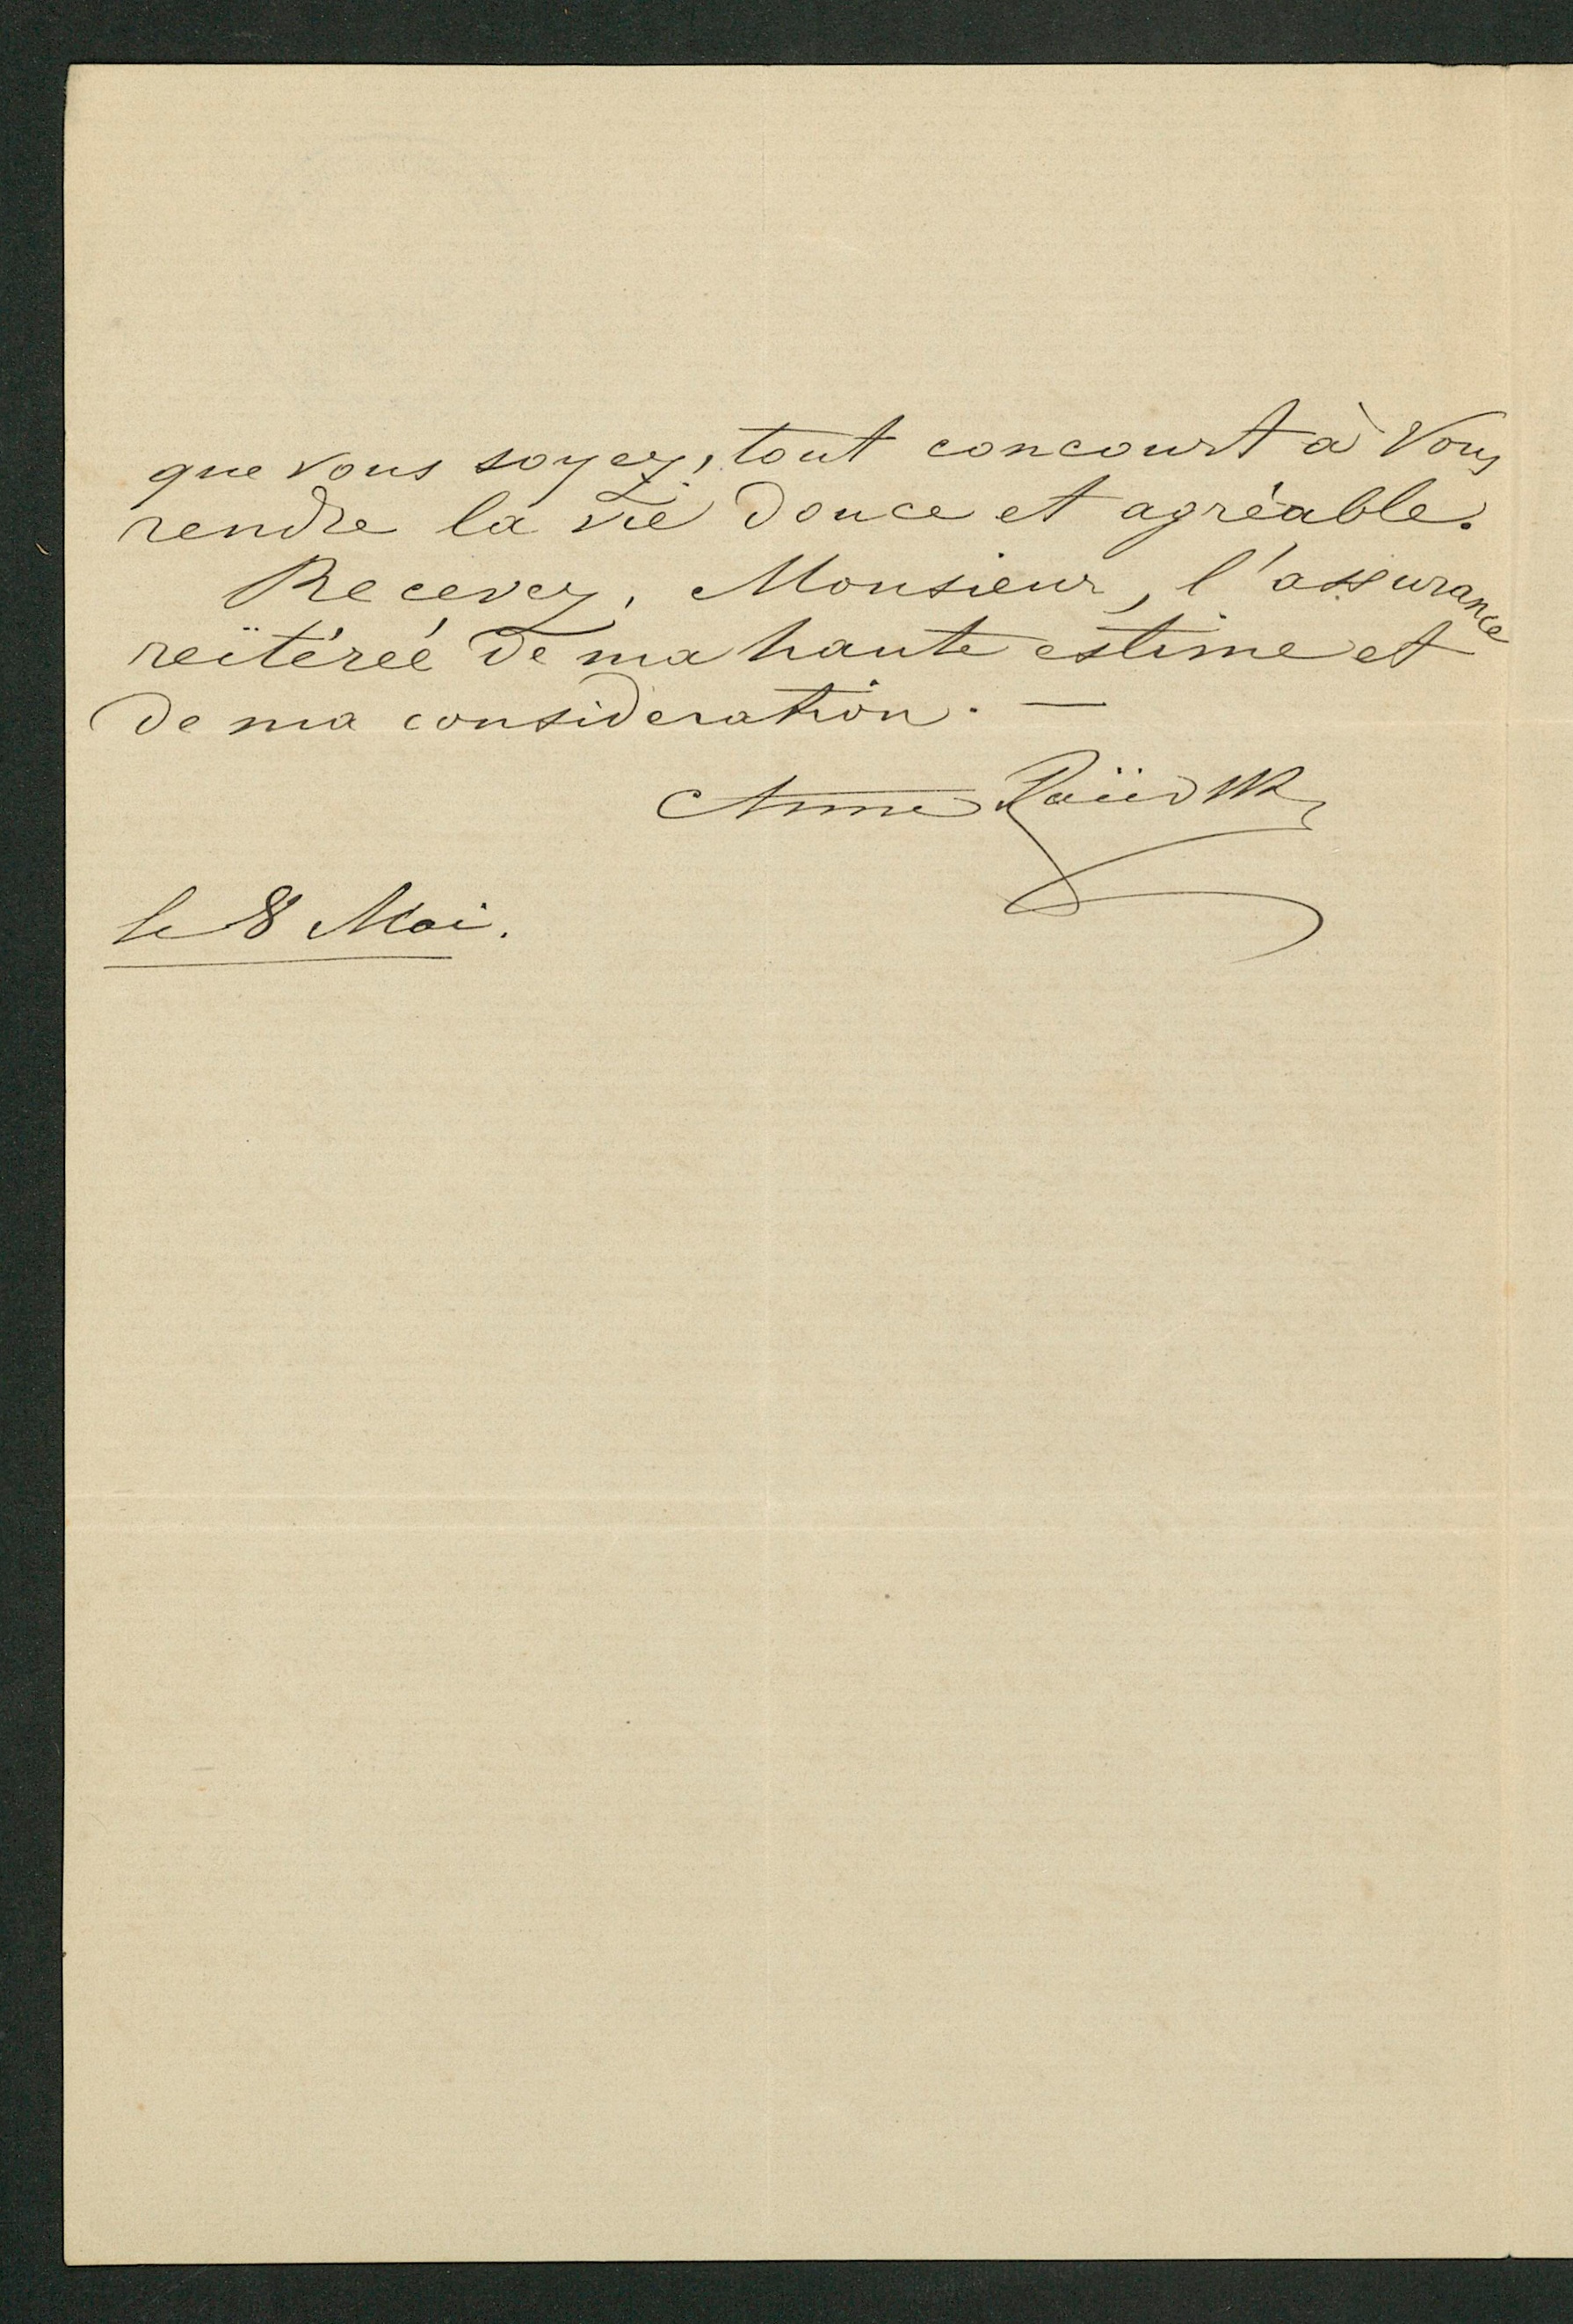 que vous soyez, tout concourt à Vous
rendre la vie douce et agréable.
Recevez, Monsieur, l'assurance
reïtéréé de ma haute estime et
de ma consideration. —
Anne
le 8 Mai.